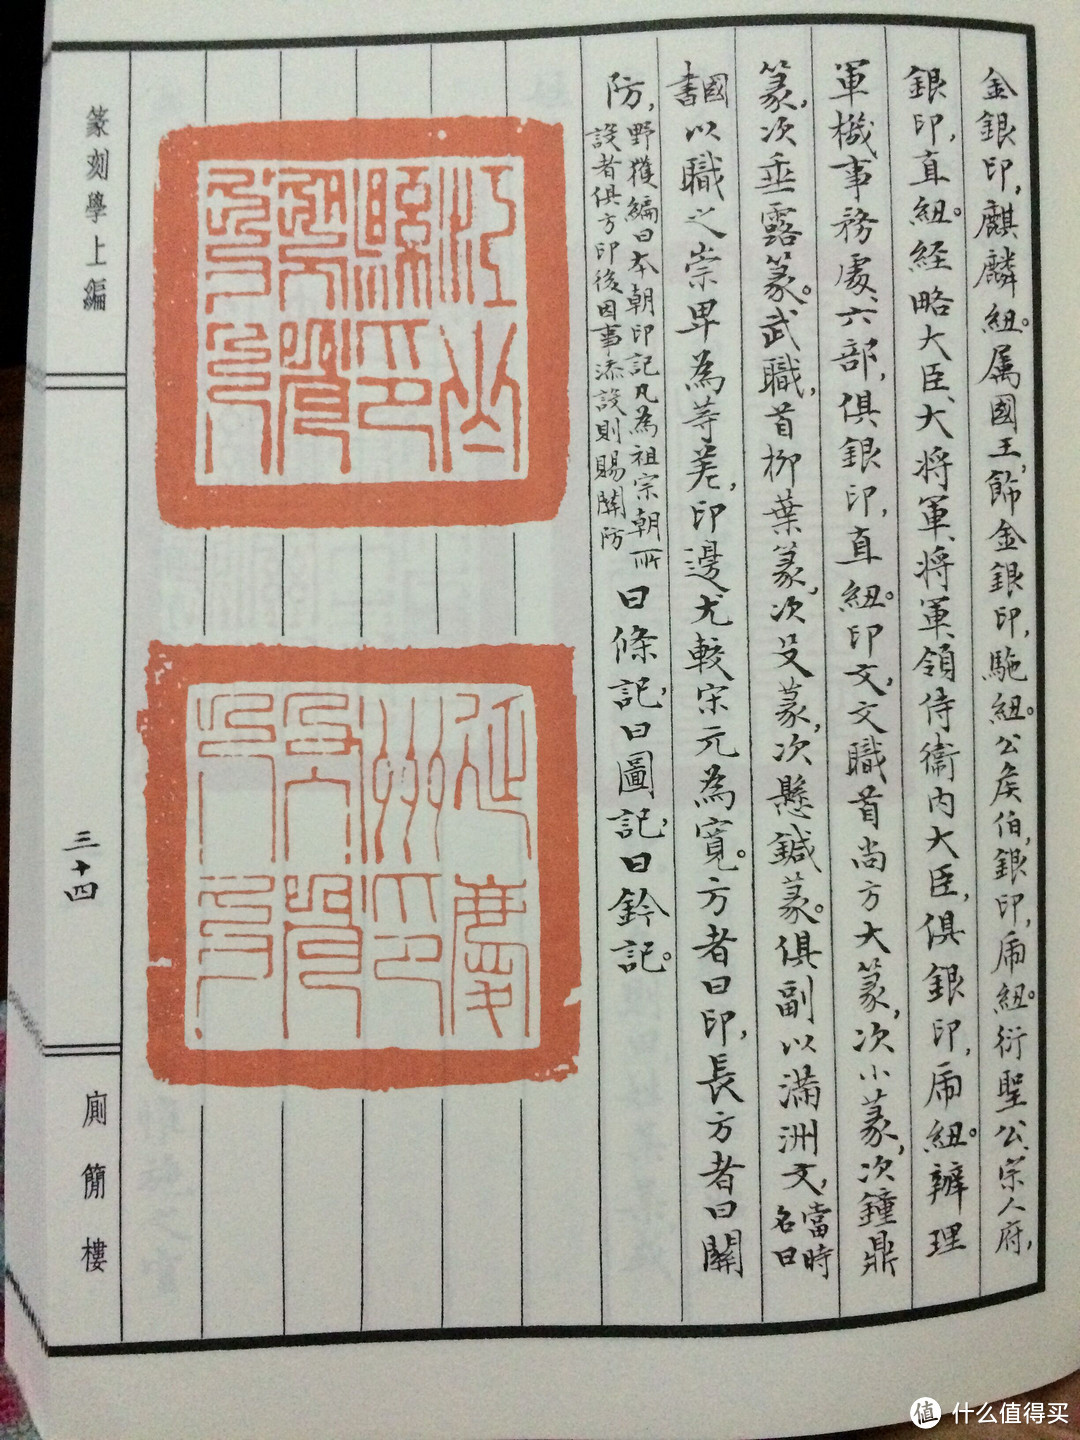 金銀印，麒麟紐。屬國王，飾金銀印，駞紐。公侯伯，銀印，虎紐。衍聖公、宗人府，
銀印，直紐。經略大臣、大將軍、將軍、領侍衛內大臣，俱銀印，虎紐。辦理
軍機事務處、六部，俱銀印，直紐。印文，文職首尚方大篆，次小篆，次鐘鼎
篆，次垂露篆。武職，首柳葉篆，次殳篆，次懸鍼篆。俱副以滿洲文，當時名曰
國書以職之崇卑為等差，印邊尤較宋元為寬。方者曰印，長方者曰關
防，野獲編曰本朝印記凡為祖宗朝所設者俱方印後因事添設則賜關防曰條記，曰圖記，曰鈐記。
江山
縣印
延慶
州印
篆刻學上編
三十四
廁簡樓
值 什么值得买